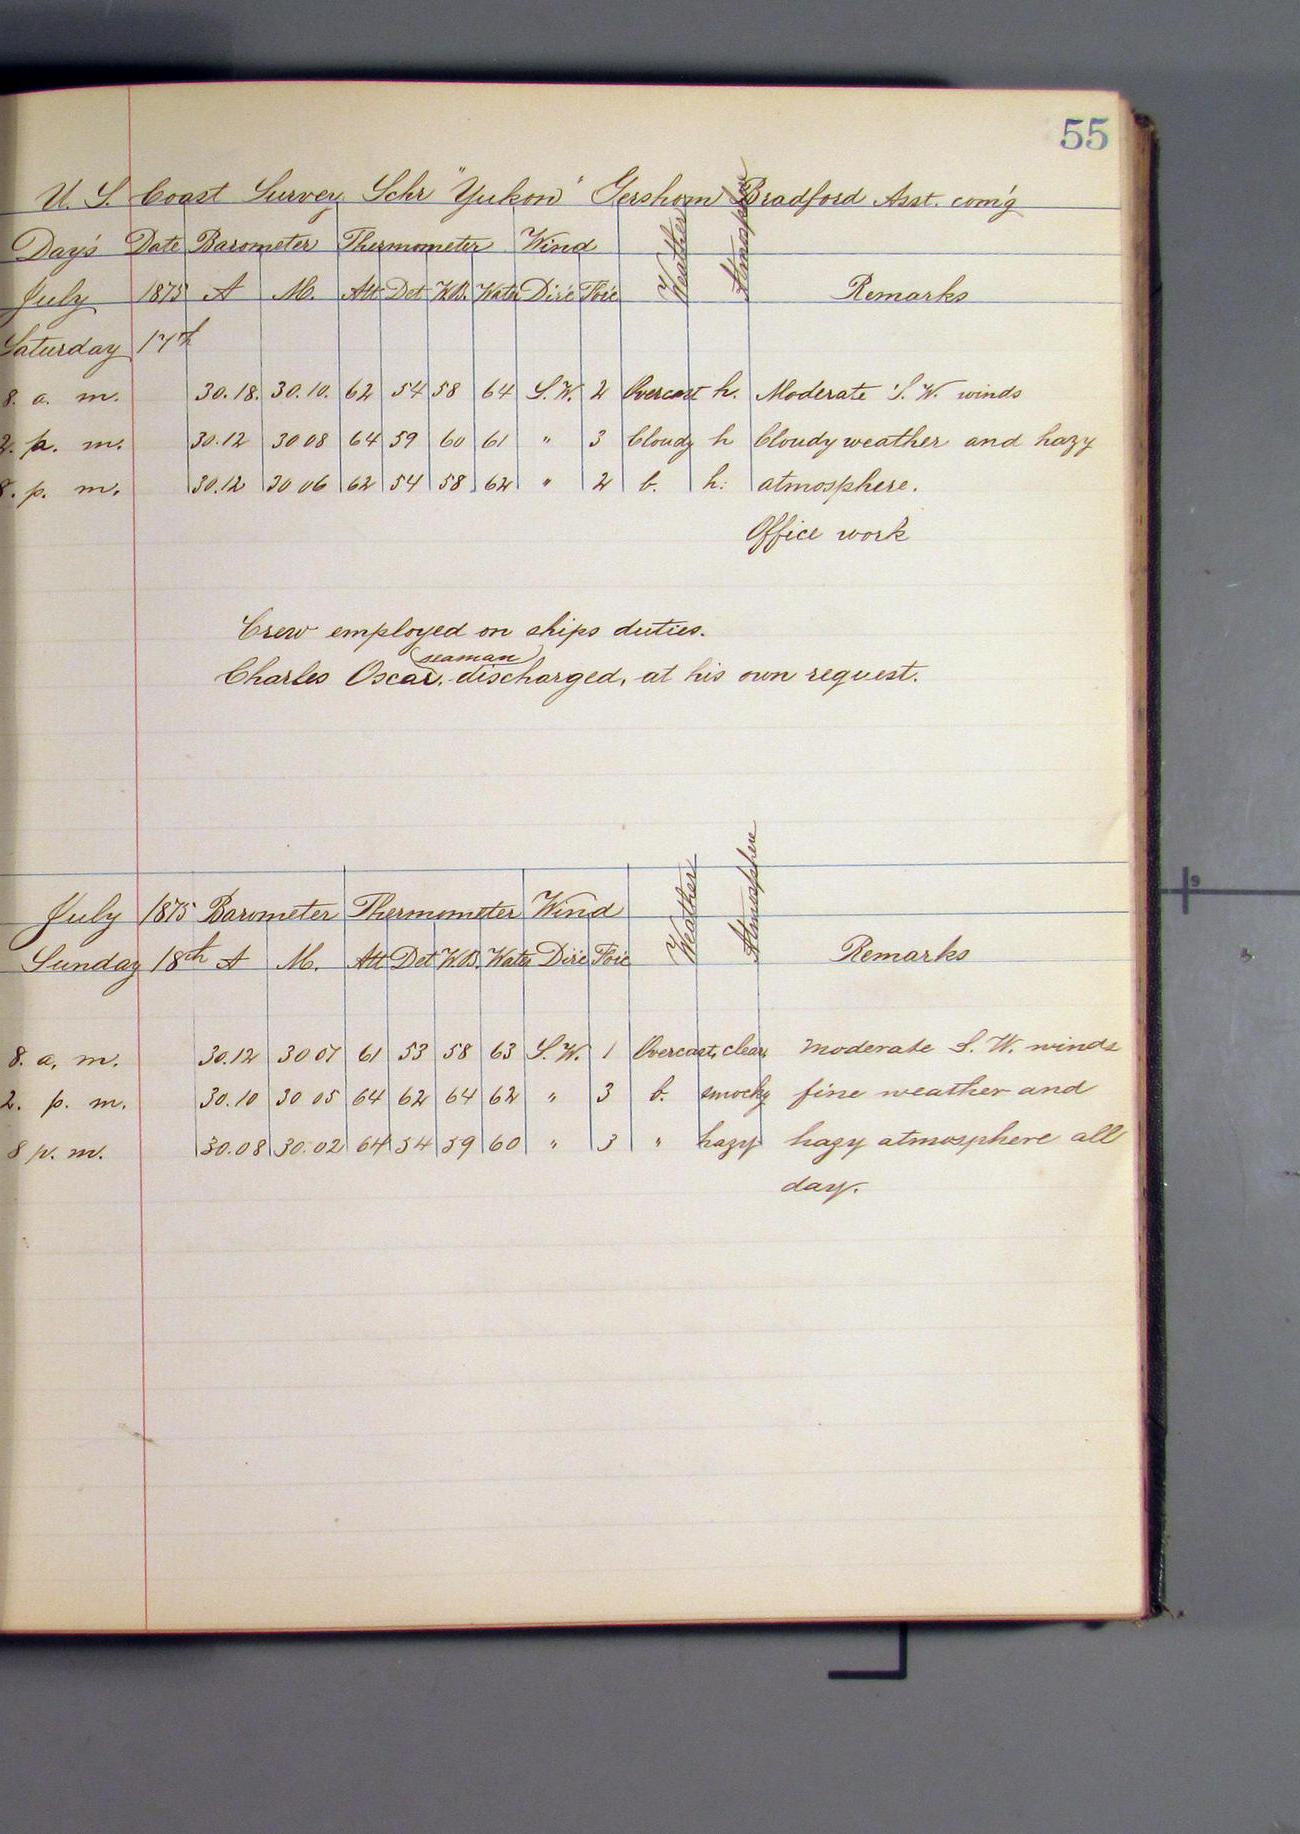 55
U. S. Coast Survey Schr "Yukon" Gershom Bradford Asst. com'g
Day's Date Barometer Thermometer Wind Weather Atmosphere
July 1875 A M. Att Det W.B. Water Dir'e For'e Remarks
Saturday 17th
8. a. m. 30.18. 30.10. 62 54 58 64 S.W. 2 Overcast h. Moderate S. W. winds
2. p. m. 30.12 30 08 64 59 60 61 " 3 Cloudy h Cloudy weather and hazy
8. p. m. 30.12 30 06 62 54 58 62 " 2 b. h. atmosphere.
Office work
Crew employed on ships duties.
(seaman)
Charles Oscar. discharged, at his own request.
July 1875 Barometer Thermometer Wind Weather Atmosphere
Sunday 18th A M. Att Det W.B. Water Dir'e For'e Remarks
8. a. m. 30.12 30 07 61 53 58 63 S.W. 1 Overcast, clear, Moderate S. W. winds
2. p. m. 30.10 30 05 64 62 64 62 " 3 b. smocky fine weather and
8 p. m. 30.08 30.02 64 54 59 60 " 3 " hazy hazy atmosphere all
day.